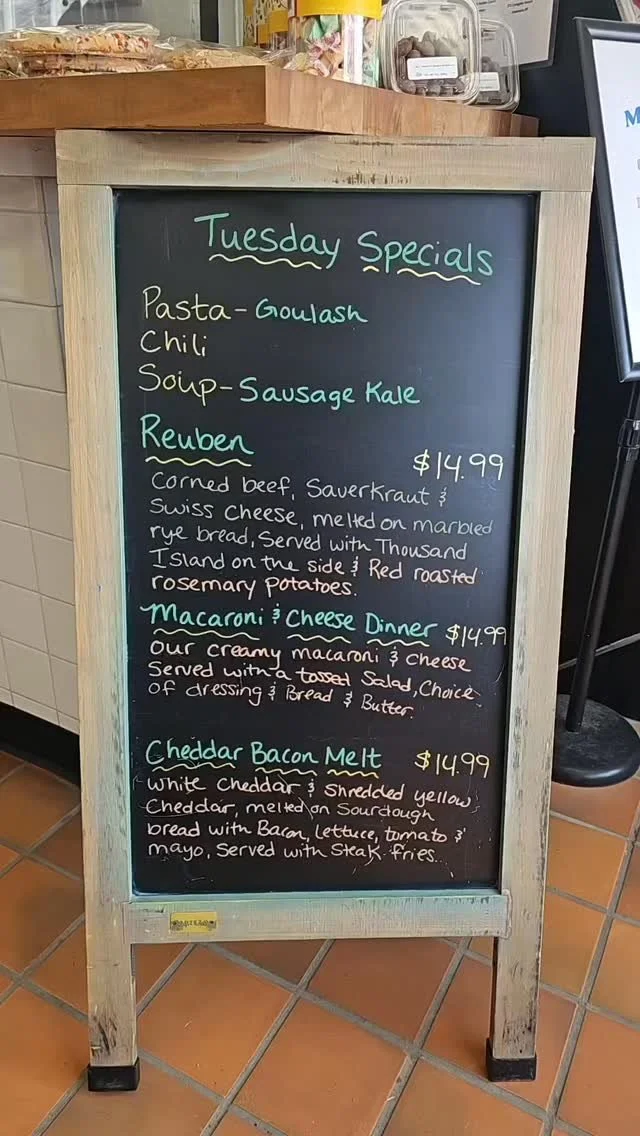 Tuesday Specials
Pasta - Goulash
Chili
Soup - Sausage Kale
Reuben $14.99
Corned beef, Sauerkraut &
Swiss Cheese, melted on marbled
rye bread, Served with Thousand
Island on the side & Red roasted
rosemary potatoes.
Macaroni & Cheese Dinner $14.99
Our creamy macaroni & cheese
Served with a tossed Salad, Choice
of dressing & Bread & Butter.
Cheddar Bacon Melt $14.99
White Cheddar & Shredded yellow
Cheddar, melted on Sourdough
bread with Bacon, Lettuce, tomato &
mayo, Served with Steak fries.
M